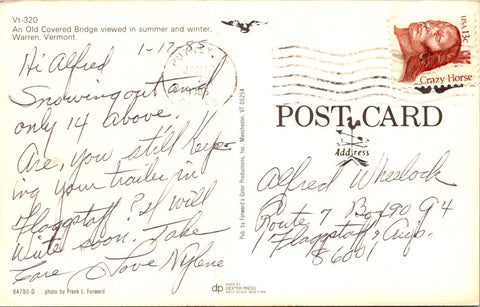 Vt-320
An Old Covered Bridge viewed in summer and winter,
Warren, Vermont.
1-17-85
Hi Alfred
Snowing out and
only 14 above.
Are, you still keep-
ing your trailer in
Flaggstaff? I will
write soon. Take
Care Love Nylene
84796-D photo by Frank L. Forward
Pub. by Forward's Color Productions, Inc., Manchester, VT 05254
dp
MADE BY
DEXTER PRESS
WEST NYACK, NEW YORK
USA 13c
Crazy Horse
POST CARD
Address
Alfred Wheelock
Route 7 Box 90 G4
Flaggstaff, Ariz.
86001